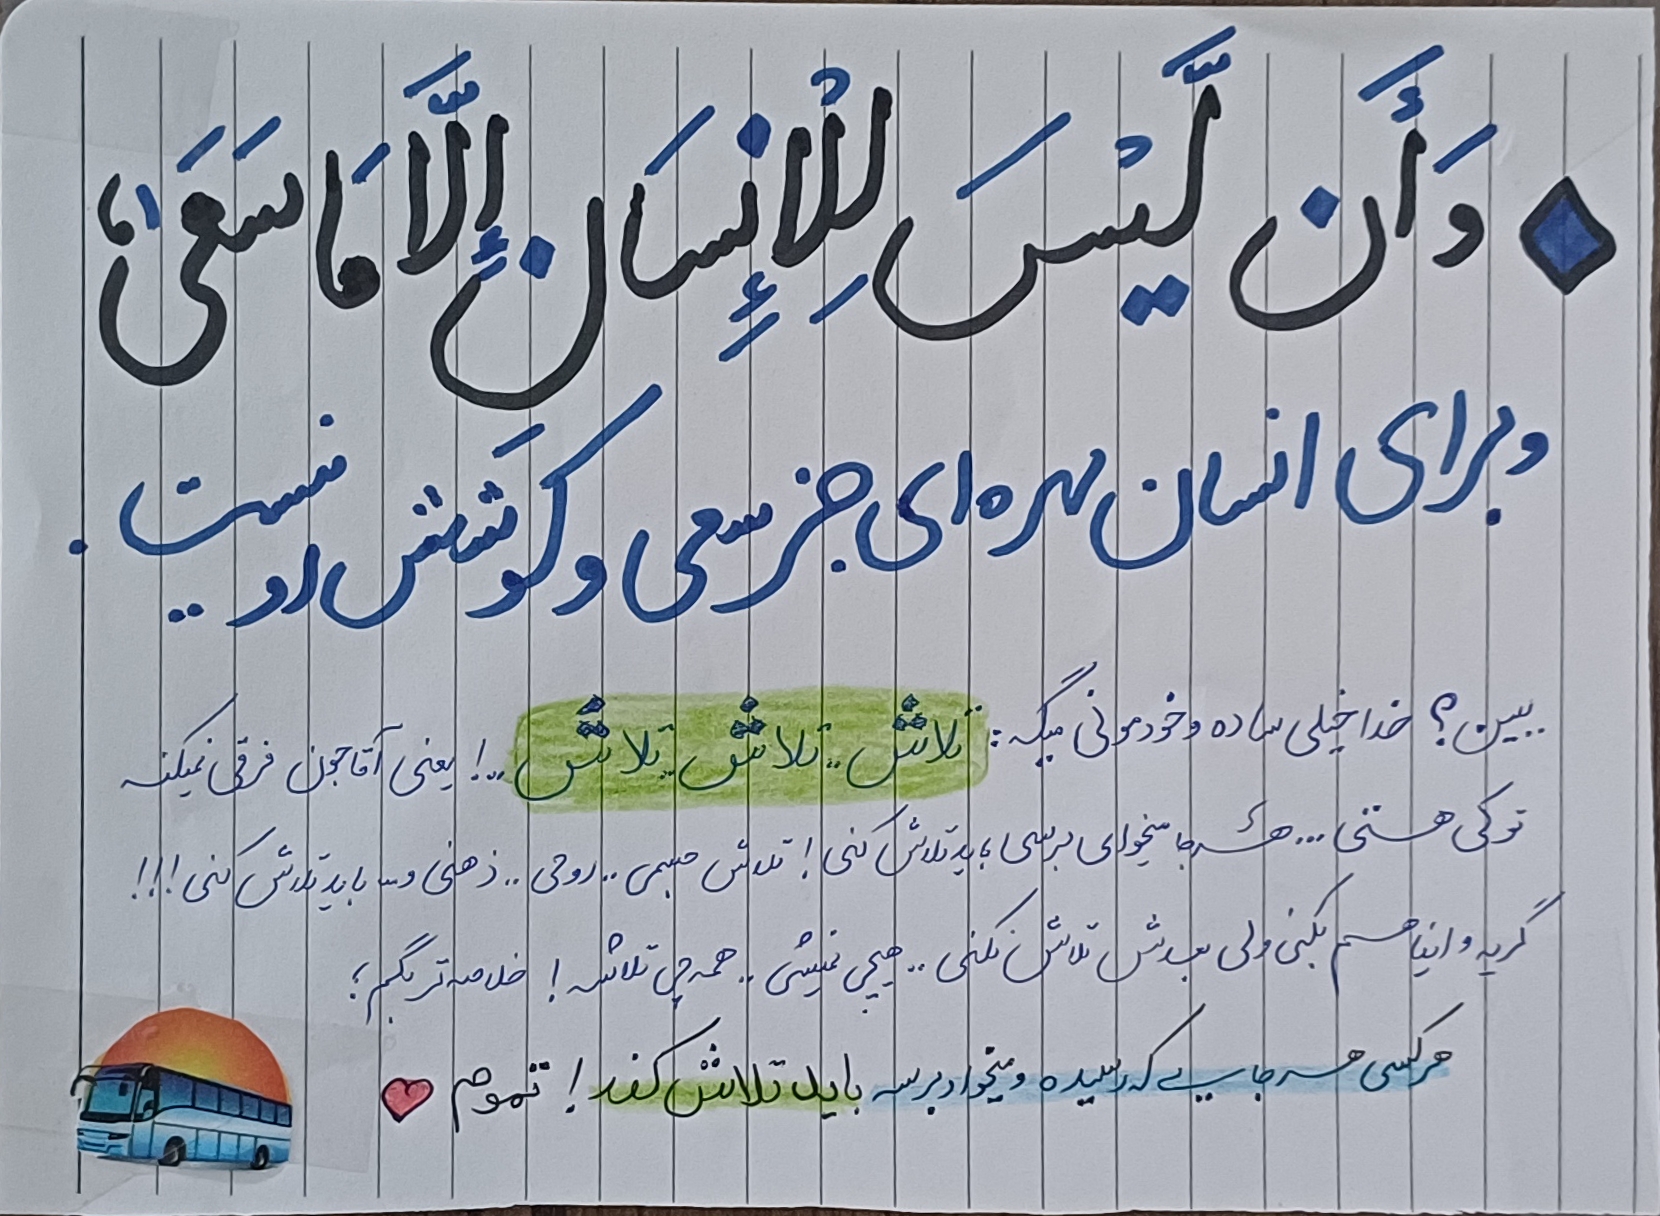 وَأَن لَّیْسَ لِلْإِنسَانِ إِلَّا مَا سَعَى؛
وبرای انسان بهره ای جز سعی و کوشش او نیست.
ببین؟ خدا خیلی ساده و خودمونی میگه: تلاش.. تلاش.. تلاش..! یعنی آقاجون فرقی نمیکنه
تو کی هستی... هر جا میخوای برسی باید تلاش کنی! تلاش جسمی.. روحی.. ذهنی و... باید تلاش کنی!!!
گریه و اینا هم بکنی ولی بعدش تلاش نکنی.. هیچی نمیشی.. همه چی تلاشه! خلاصه تر بگم؛
هرکسی هر جایی که رسیده و میخواد برسه باید تلاش کند! تموم